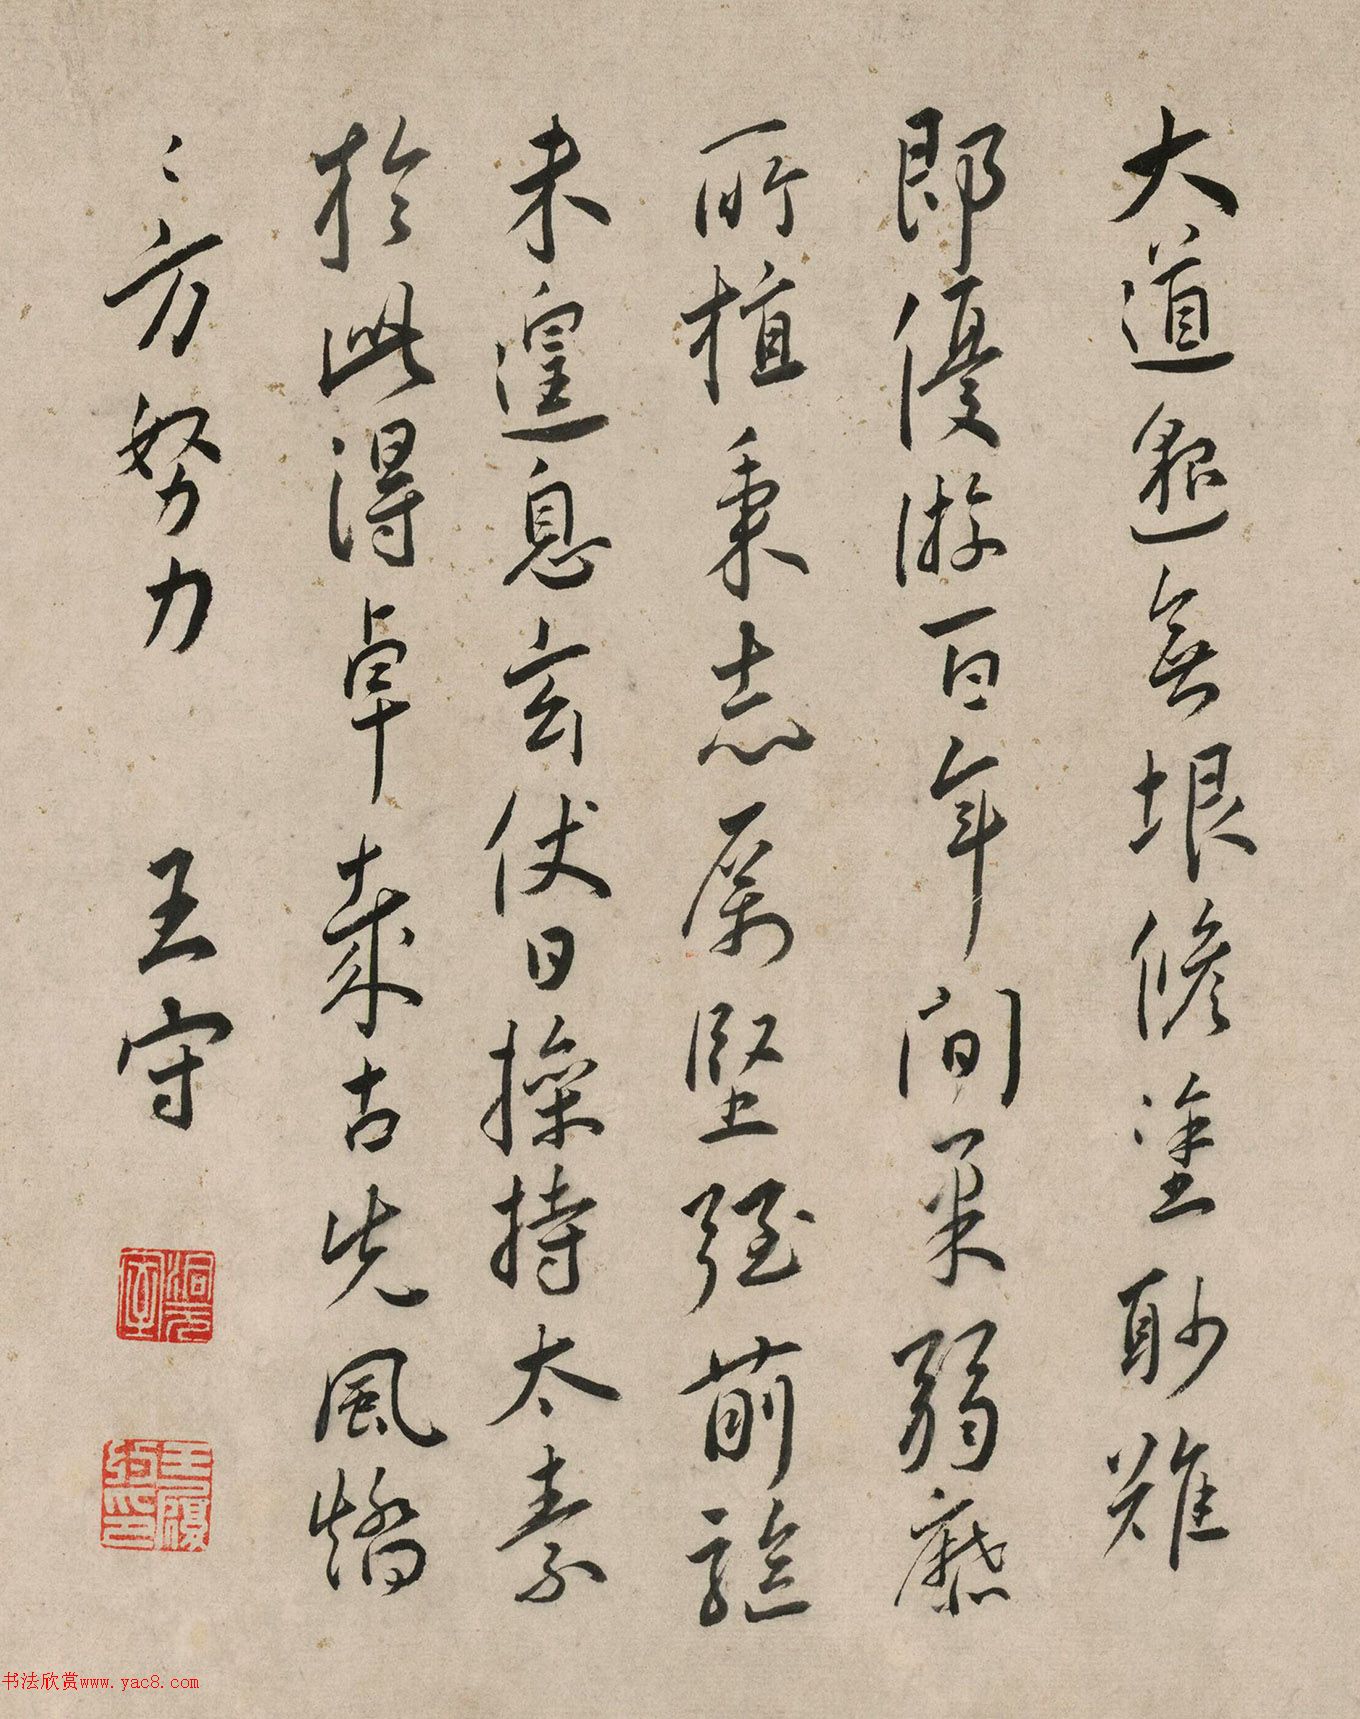 大道邈無垠脩塗眇難
即優游百年間柔弱靡
所植秉志厲堅強前驅
未遑息玄伏日操持太素
於此得卓哉古先風
〻方努力 王守
書法欣赏www.yac8.com